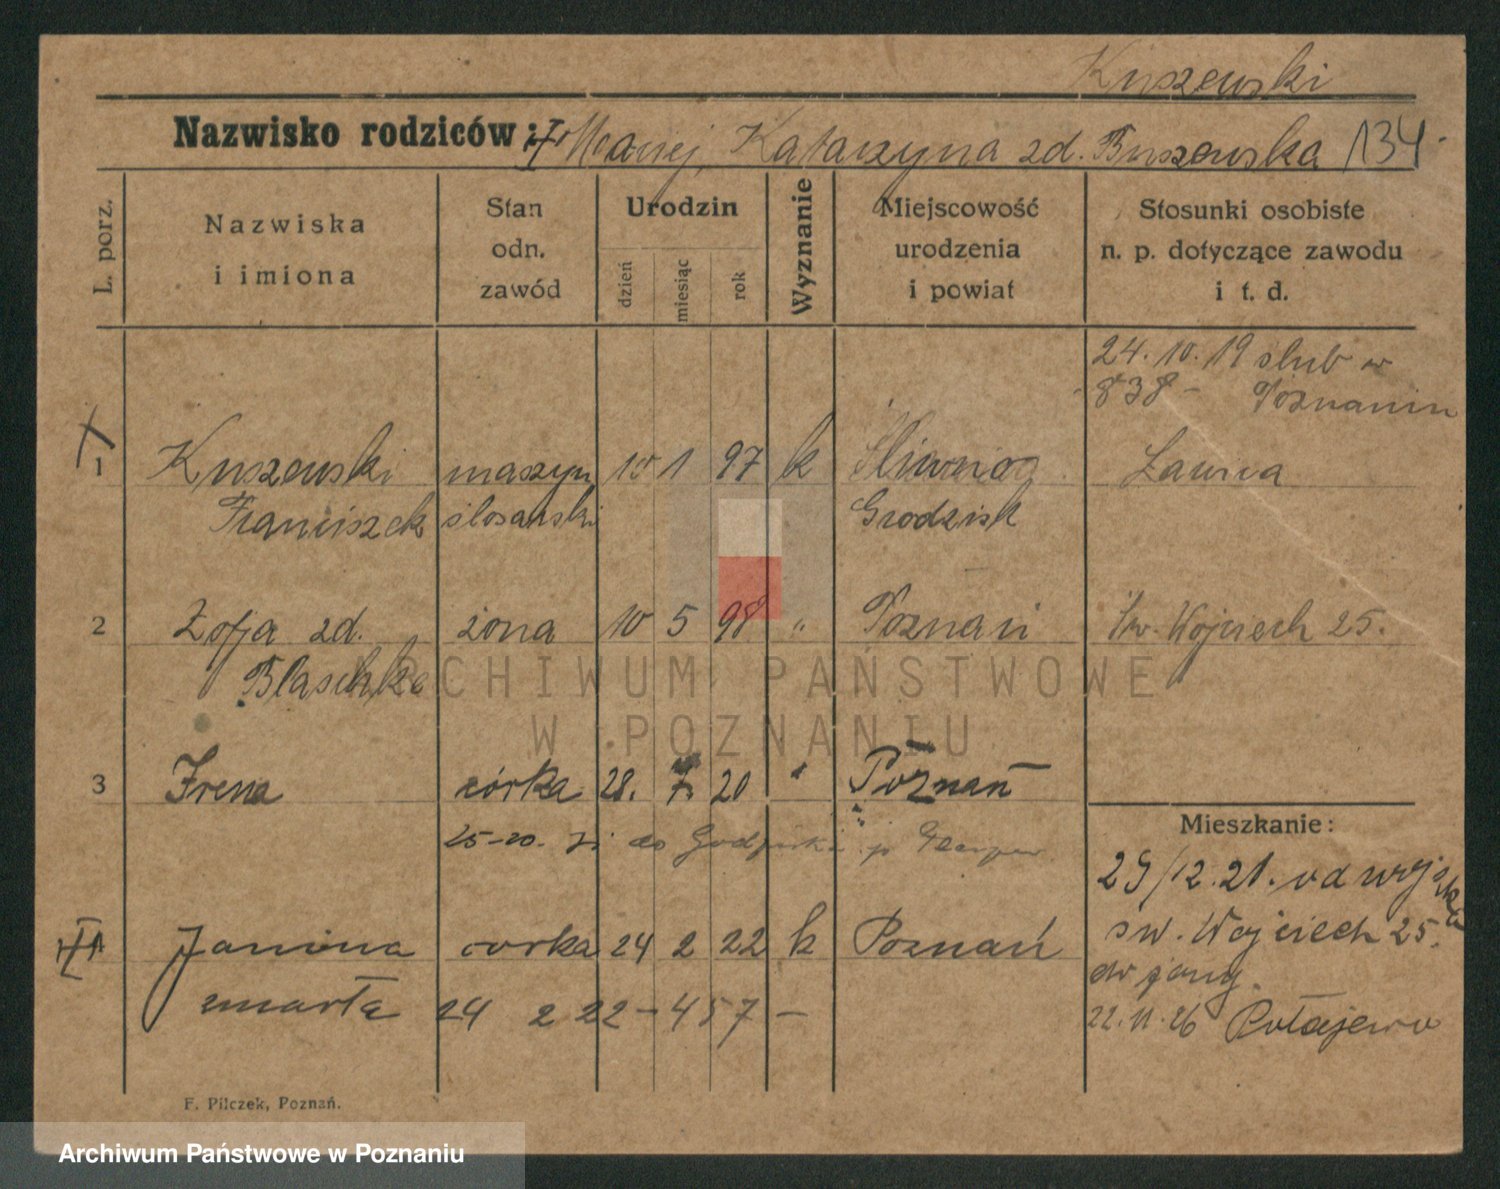 Kuszewski
Nazwisko rodziców: Maciej, Katarzyna zd. Buszewska 134
L. porz.
Nazwiska i imiona
Stan odn. zawód
Urodzin
dzień miesiąc rok
Wyznanie
Miejscowość urodzenia i powiat
Stosunki osobiste n. p. dotyczące zawodu i t. d.
24. 10. 19 slub w
- 838 - Poznaniu
1 Kuszewski maszyn 10 1 97 k Ławica
Franciszek slosarski Grodzisk
2 Zofja zd. żona 10 5 98 " Poznań Św. Wojciech 25.
Blaschke
3 Irena córka 28. 7. 20 " Poznań
25-20. do
Mieszkanie:
29/12.21. od wojska
Janina corka 24 2 22 k Poznań sw. Wojciech 25.
zmarła 24 2 22 - 457 -
22. 11. 26 Połajewo
F. Pilczek, Poznań.
ARCHIWUM PAŃSTWOWE
W POZNANIU
Archiwum Państwowe w Poznaniu